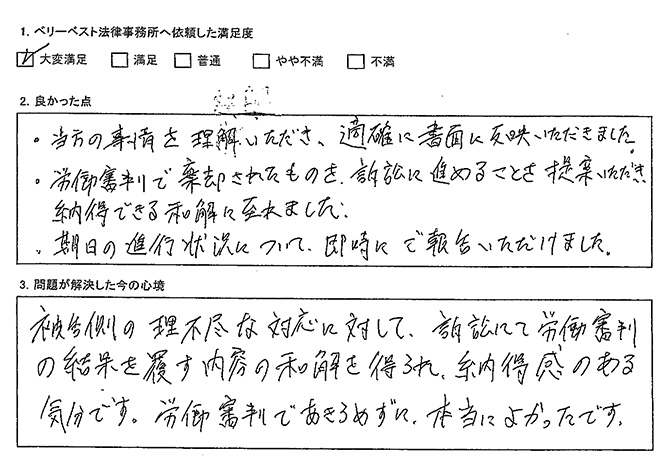 1. ベリーベスト法律事務所へ依頼した満足度
大変満足 満足 普通 やや不満 不満
2. 良かった点
・当方の事情を理解いただき、適確に書面に反映いただきました。
・労働審判で棄却されたものを、訴訟に進めることを提案いただき
納得できる和解に至れました。
・期日の進行状況について、即時にご報告いただけました。
3. 問題が解決した今の心境
被告側の理不尽な対応に対して、訴訟にて労働審判
の結果を覆す内容の和解を得られ、納得感のある
気分です。労働審判であきらめずに、本当によかったです。